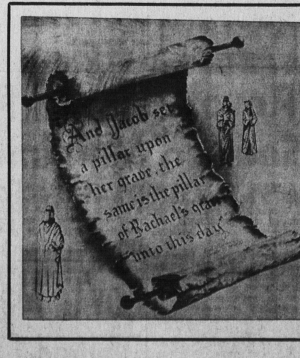 And Jacob set
a pillar upon
her grave, the
same is the pillar
of Rachael's grave
unto this day"